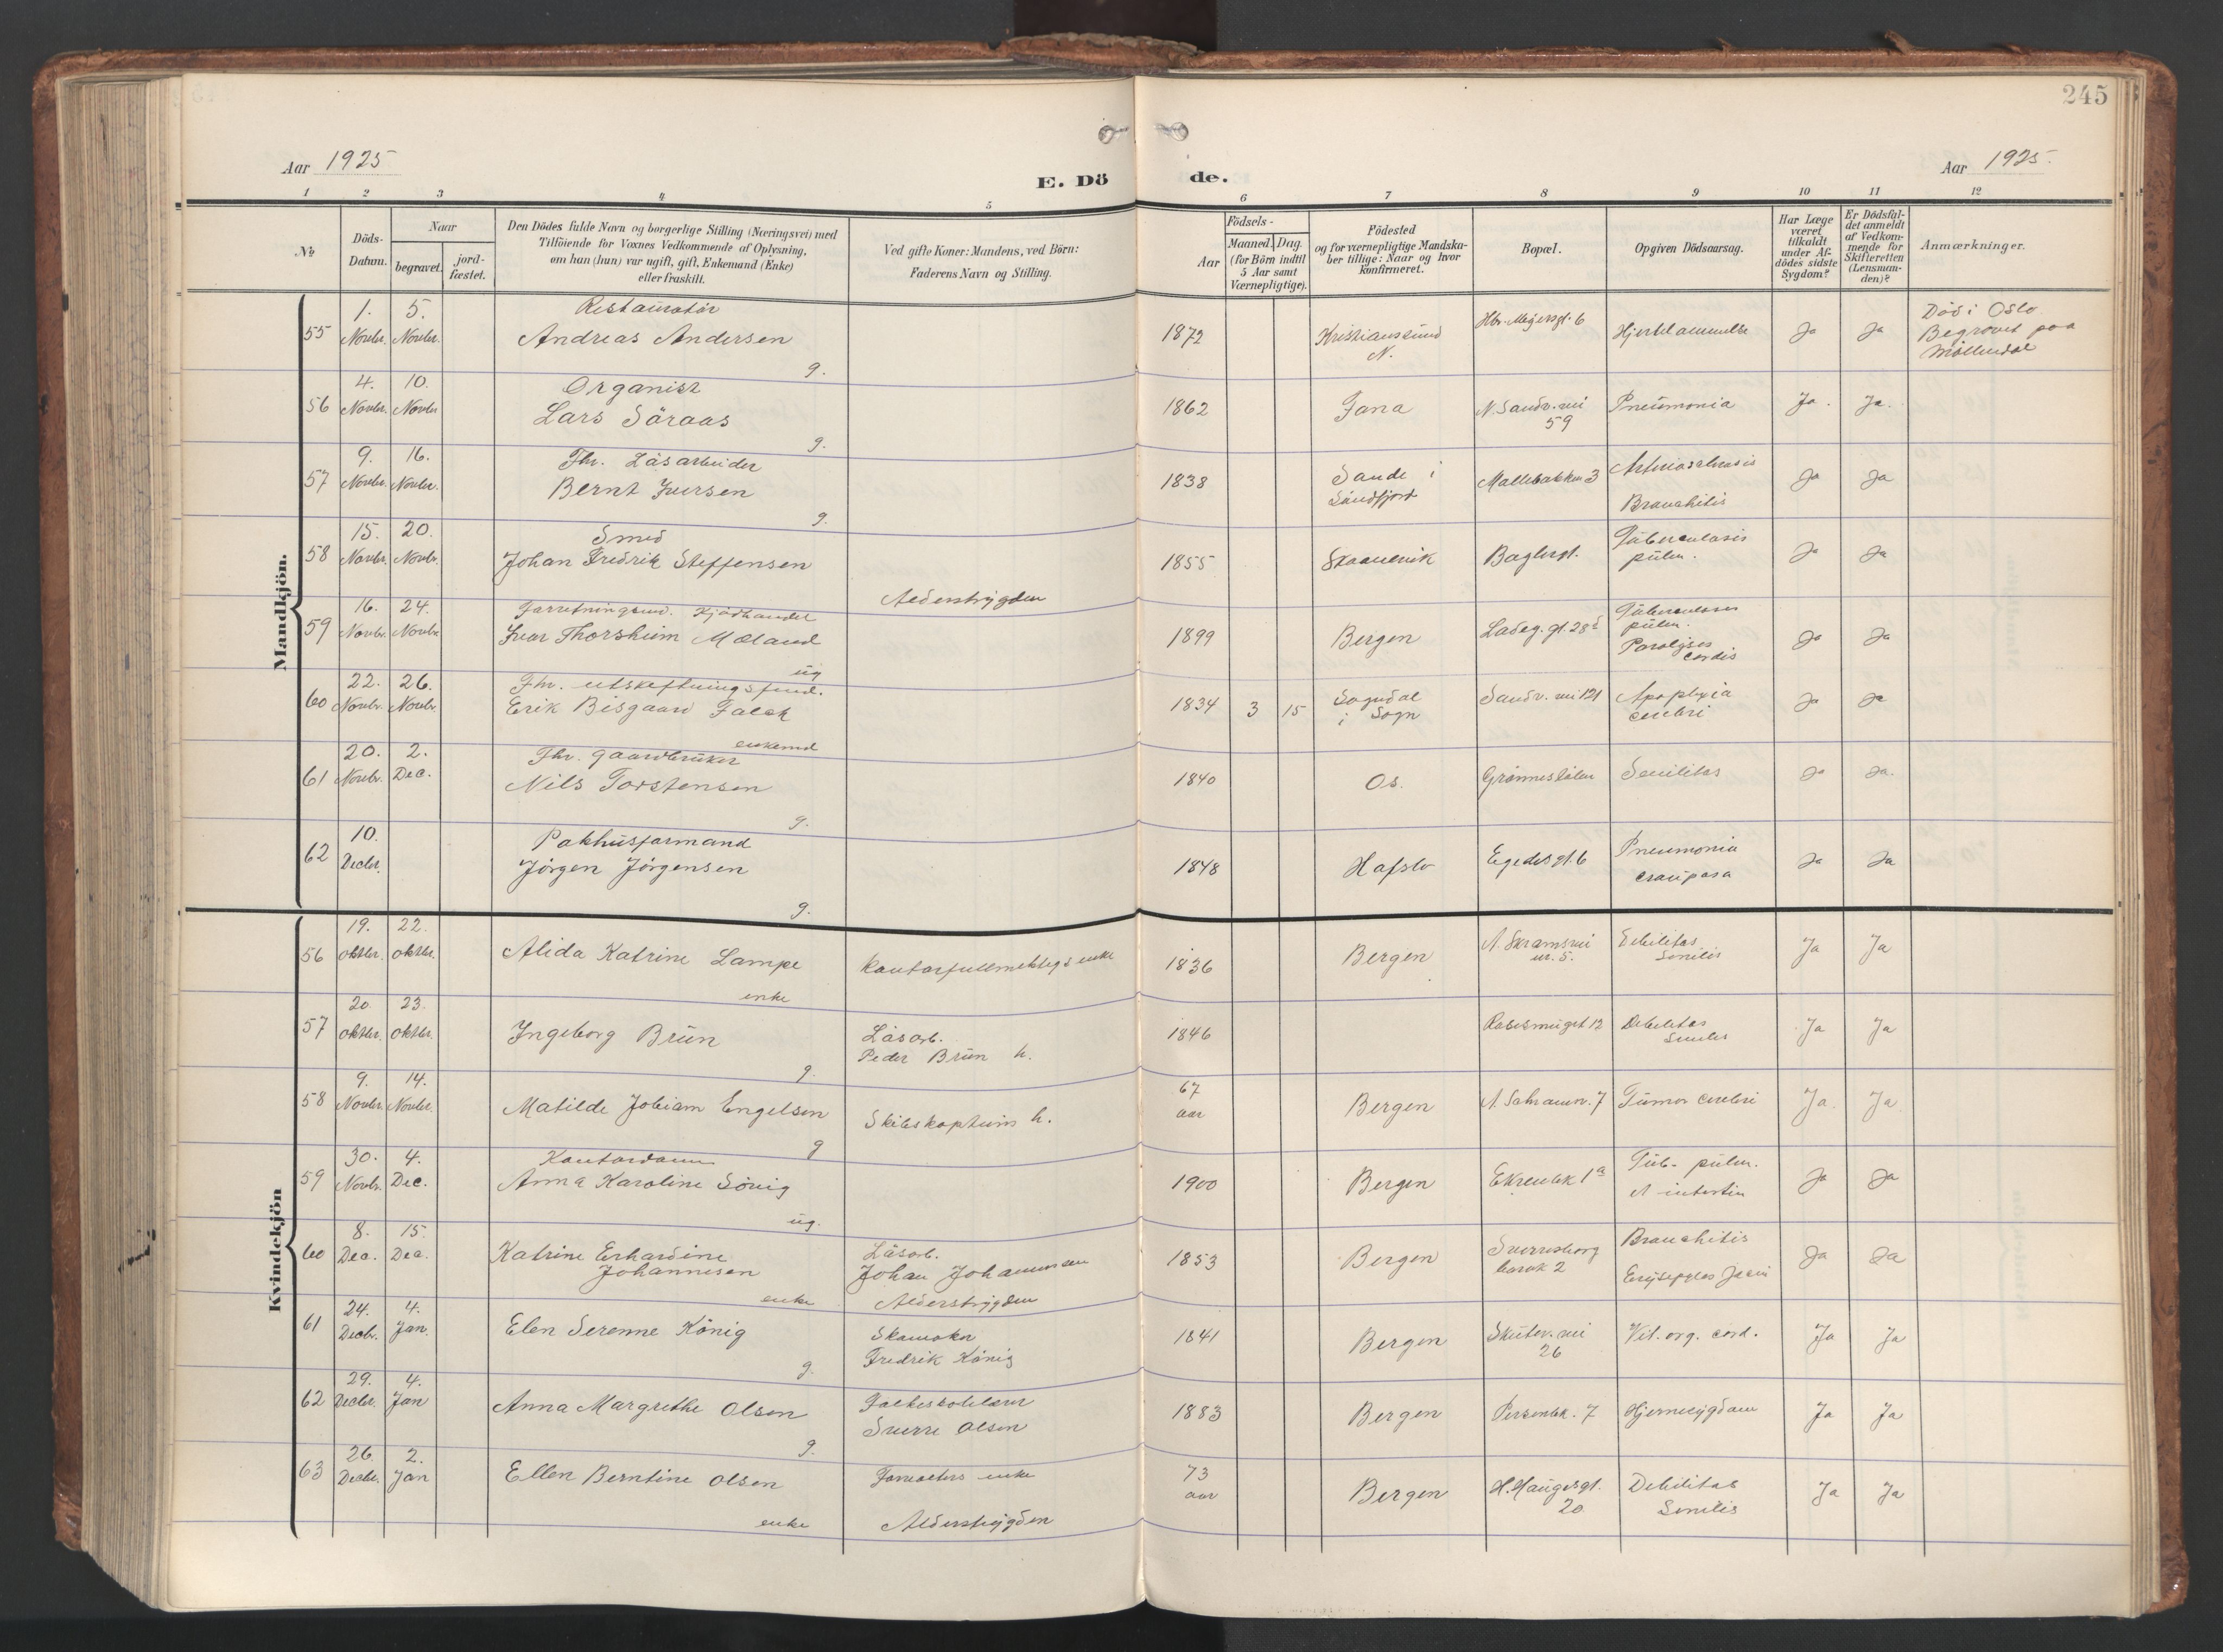 245
Aar 1925
E. Dö
de.
Aar 1925.
1 2 3 4 5 6 7 8 9 10 11 12
No
Döds-
Datum.
Naar
begravet.
jord-
fæstet.
Den Dödes fulde Navn og borgerlige Stilling (Næringsvei) med
Tilföiende for Voxnes Vedkommende af Oplysning,
om han (hun) var ugift, gift, Enkemand (Enke)
eller fraskilt.
Ved gifte Koner: Mandens, ved Börn:
Faderens Navn og Stilling.
Födsels-
Aar
Maaned. Dag.
(for Börn indtil
5 Aar samt
Værnepligtige).
Födested
og for værnepligtige Mandska-
ber tillige: Naar og hvor
konfirmeret.
Bopæl.
Opgiven Dödsaarsag.
Har Læge
været
tilkaldt
under Af-
dödes sidste
Sygdom?
Er Dödsfal-
det anmeldt
af Vedkom-
mende for
Skifteretten
(Lensman-
den)?
Anmærkninger.
Mandkjön.
55 1. Novbr. 5. Novbr. Restauratör
Andreas Andersen
g.
1872 Kristiansund
N.
Hjertelammelse Ja Ja
Död i Oslo
Begravet paa
Möllendal
56 4. Novbr. 10. Novbr Organist
Lars Söraas
g.
1862 Fana N. Sandv. vei
59
Pneumonia Ja. Ja.
57 9. Novbr. 16. Novbr. Fhv. Läsarbeider
Bernt Iversen
g.
1838 Sande i
Söndfjord
Mallebakken 3
Bronchitis
Ja Ja
58 15. Novbr. 20. Novbr. Smed
Johan Fredrik Steffensen
Alderstrygden
1855 Skaanevik Baglergt. Tuberculosis
pulm.
Ja Ja
59 16. Novbr. 24. Novbr. Kjödhandel
Ivar Thorsheim Mæland
ug
1899 Bergen Ladeg. gt. 28 Tuberculosis
pulm.
Paralysis
cordis
Ja Ja
60 22. Novbr. 26. Novbr. Fhv. utskiftningsfuld.
Erik Bisgaard Falch
enkemd
1834 3 15 Sogndal
i Sogn
Sandv. vei 121 Apoplexia
cerebri
Ja Ja
61 20. Novbr. 2. Dec. Fhv. gaardbruker
Nils Torstensen
g.
1840 Os. Senilitas Ja Ja.
62 10. Decbr. Pakhusformand
Jörgen Jörgensen
g.
1848 Hafslo Egedesgt. 6 Pneumonia
crouposa
Ja Ja
Kvindekjön
56 19. oktbr. 22. oktbr. Alida Katrine Lampe
enke
Kontorfuldmektigs enke
1836 Bergen
nr. 5.
Debilitas
Senilis
Ja Ja
57 20. oktbr. 23. oktbr. Ingeborg Brun
g.
Läsarb.
Peder Brun h.
1846 Debilitas
Senilis
Ja Ja
58 9. Novbr. 14. Novbr. Matilde Engelsen
g
Skibskapteins h.
67
aar
Bergen Tumor cerebri Ja. Ja.
59 30. Novbr. 4. Dec. Kontordame
Anna Karoline
ug.
1900 Bergen Ekrenbk 1a Tub. pulm.
Ja Ja
60 8. Dec. 15. Dec. Katrine Erhardine
Johannesen
enke
Läsarb.
Johan Johannesen
Alderstrygden
1853 Bergen Sverresborg
barak 2
Bronchitis
Ja Ja
61 24. Decbr. 4. Jan. Elen Serenne König
g.
Skomaker
Fredrik König
1841 Bergen Skutev. vei
26
Vit. org. cord. Ja Ja
62 29. Decbr. 4. Jan Anna Margrethe Olsen
g.
Folkeskolelærer
Sverre Olsen
1883 Bergen Persenbk. 7 Hjernesygdom Ja Ja
63 26. Decbr. 2. Jan Ellen Berntine Olsen
enke
enke
Alderstrygden
73
aar
Bergen H. Haugesgt.
20
Debilitas
Senilis
Ja Ja